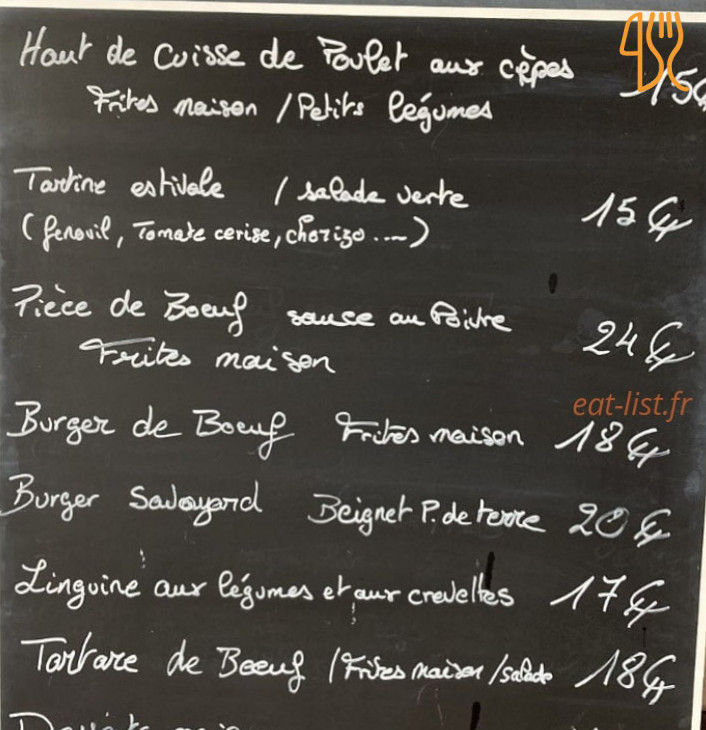 Haut de Cuisse de Poulet aux cèpes 15€
Frites maison / Petits légumes
Tartine estivale / salade verte
(fenouil, Tomate cerise, chorizo....) 15€
Pièce de Boeuf sauce au Poivre
Frites maison 24€
eat-list.fr
Burger de Boeuf Frites maison 18€
Burger Savoyard Beignet P. de terre 20€
Linguine aux légumes et aux crevettes 17€
Tartare de Boeuf / Frites maison / salade 18€